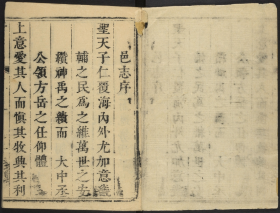 邑志序
聖天子仁覆海內外尤加意畿
輔之民為之維萬世之安
纘神禹之績而 大中丞
公領方岳之任仰體
上意愛其人而慎其牧興其利